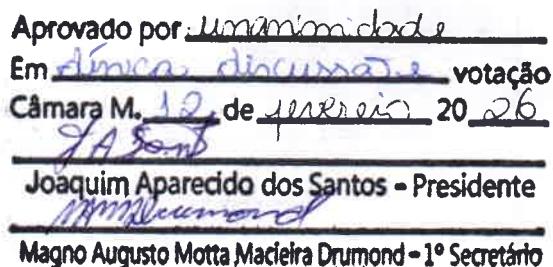 Aprovado por unanimidade
Em única discussão e votação
Câmara M. 12 de fevereiro 20 26
JASant
Joaquim Aparecido dos Santos - Presidente
MMDrumond
Magno Augusto Motta Macieira Drumond - 1º Secretário